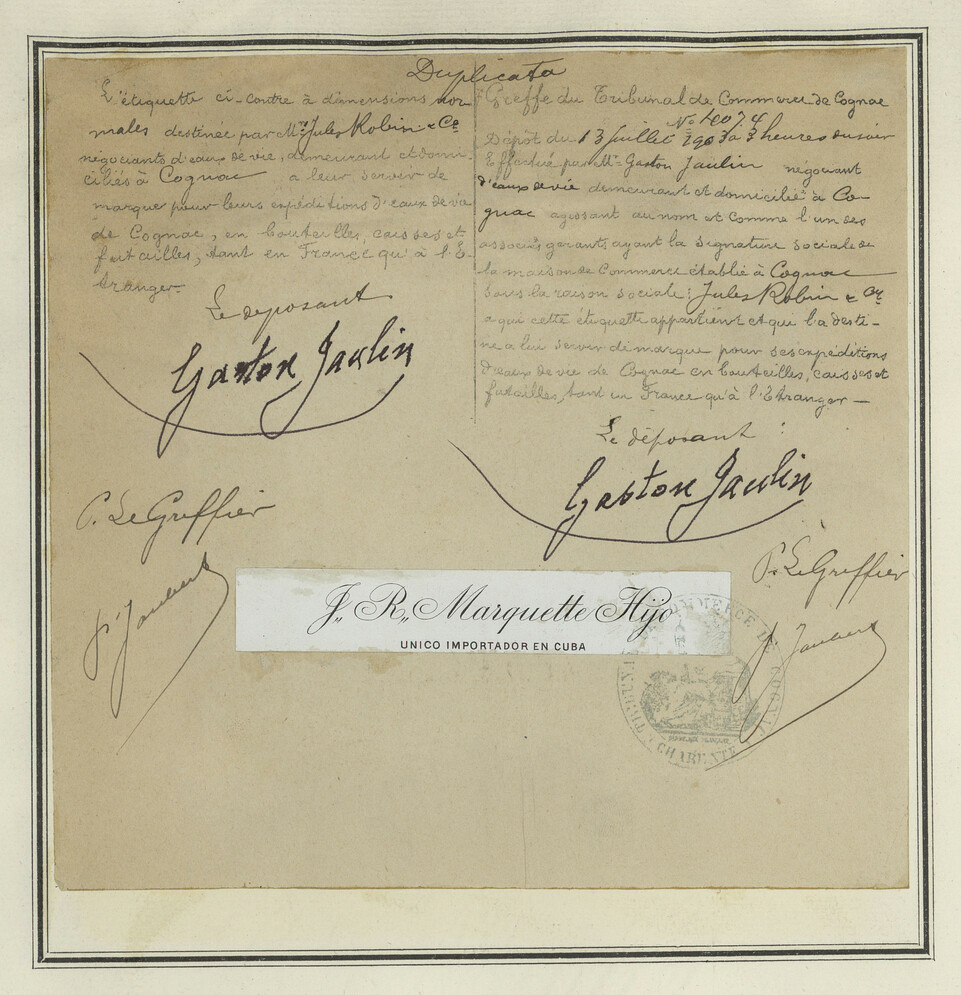 Duplicata
L'étiquette ci-contre à dimensions nor-
males destinée par Mrs Jules Robin & Ce
négociants d'eaux de vie, demeurant et domi-
ciliés à Cognac a leur servir de
marque pour leurs expéditions d'eaux de vie
de Cognac, en bouteilles, caisses et
futailles, tant en France qu'à l'E-
tranger
Le déposant
Gaston Jaulin
P. Le Greffier
Greffe du Tribunal de Commerce de Cognac
No 4007
Dépôt du 13 juillet 1903 à 3 heures du soir
Effectué par Mr Gaston Jaulin négociant
d'eaux de vie demeurant et domicilié à Co-
gnac agissant au nom et comme l'un des
associés gérants ayant la signature sociale de
la maison de Commerce établie à Cognac
sous la raison sociale: Jules Robin & Ce
a qui cette étiquette appartient et qui l'a desti-
née a lui servir de marque pour ses expéditions
d'eaux de vie de Cognac en bouteilles, caisses et
futailles, tant en France qu'à l'Etranger —
Le déposant :
Gaston Jaulin
P. Le Greffier
J. R. Marquette Hijo
UNICO IMPORTADOR EN CUBA
COMMERCE DE COGNAC
CHARENTE